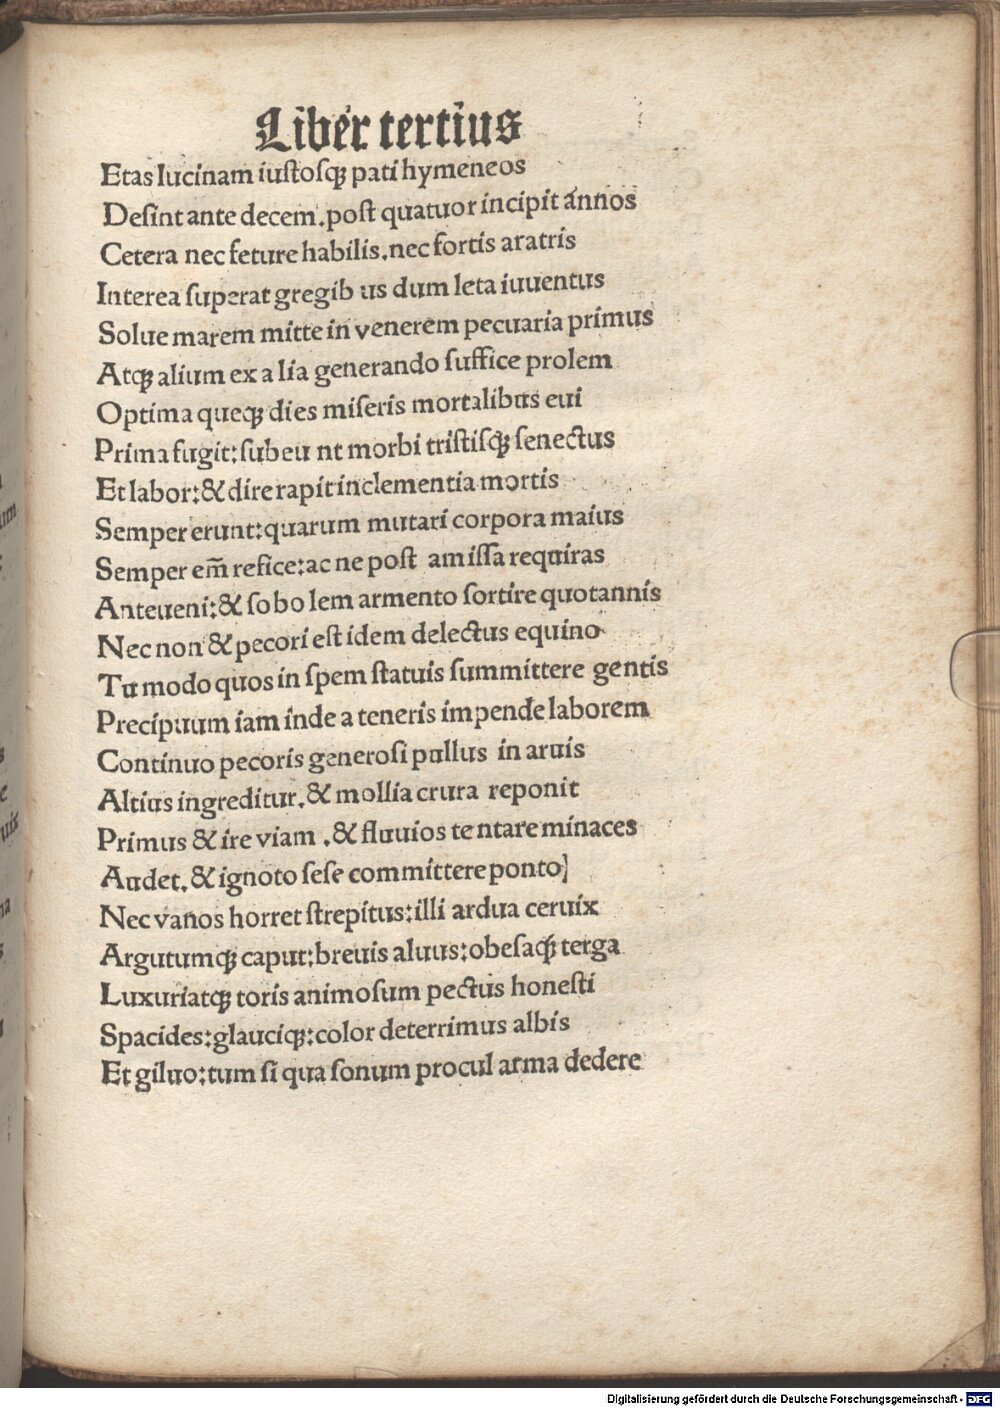 Liber tertius
Etas lucinam iustosqꝫ pati hymeneos
Desint ante decem.post quatuor incipit ánnos
Cetera nec feture habilis.nec fortis aratris
Interea superat gregib us dum leta iuuentus
Solue marem mitte in venerem pecuaria primus
Atqꝫ alium ex a lia generando suffice prolem
Optima queqꝫ dies miseris mortalibus eui
Prima fugit:subeu nt morbi tristisqꝫ senectus
Et labor:& dire rapit inclementia mortis
Semper erunt:quarum mutari corpora maius
Semper em̄ refice:ac ne post amissa requiras
Anteueni:& so bo lem armento sortire quotannis
Nec non & pecori est idem delectus equino
Tu modo quos in spem statuis summittere gentis
Precipuum iam inde a teneris impende laborem
Continuo pecoris generosi pullus in aruis
Altius ingreditur.& mollia crura reponit
Primus & ire viam .& fluuios te ntare minaces
Audet.& ignoto sese committere ponto]
Nec vanos horret strepitus:illi ardua ceruix
Argutumqꝫ caput:breuis aluus:obesaqꝫ terga
Luxuriatqꝫ toris animosum pectus honesti
Spacides:glauciqꝫ:color deterrimus albis
Et giluo:tum si qua sonum procul arma dedere
Digitalisierung gefördert durch die Deutsche Forschungsgemeinschaft - DFG